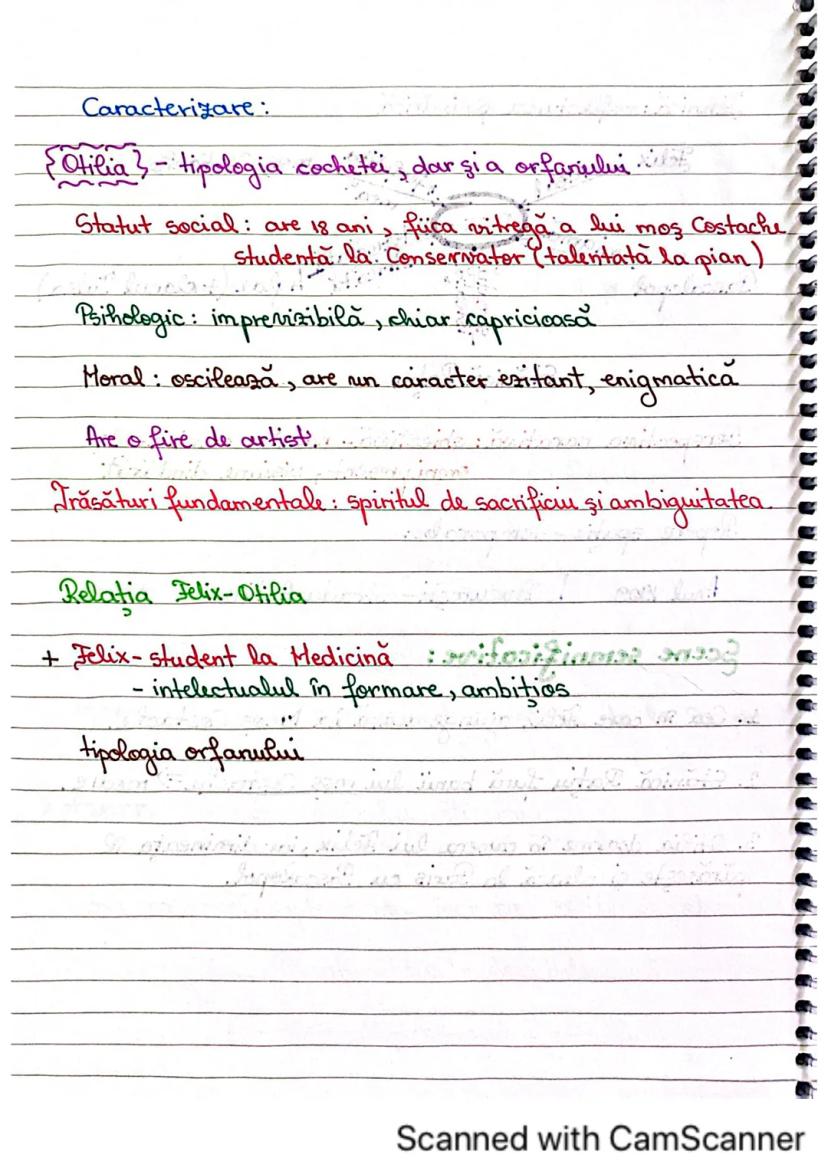 Caracterizare:
Otilia - tipologia cochetei, dar și a orfanului.
Statut social: are 18 ani, fiica vitregă a lui moș Costache
studentă la Conservator (talentată la pian)
Psihologic: imprevizibilă, chiar capricioasă
Moral: oscilează, are un caracter ezitant, enigmatică
Are o fire de artist.
Trăsături fundamentale: spiritul de sacrificiu și ambiguitatea.
Relația Felix-Otilia
+ Felix - student la Medicină
- intelectualul în formare, ambițios
tipologia orfanului
Scanned with CamScanner